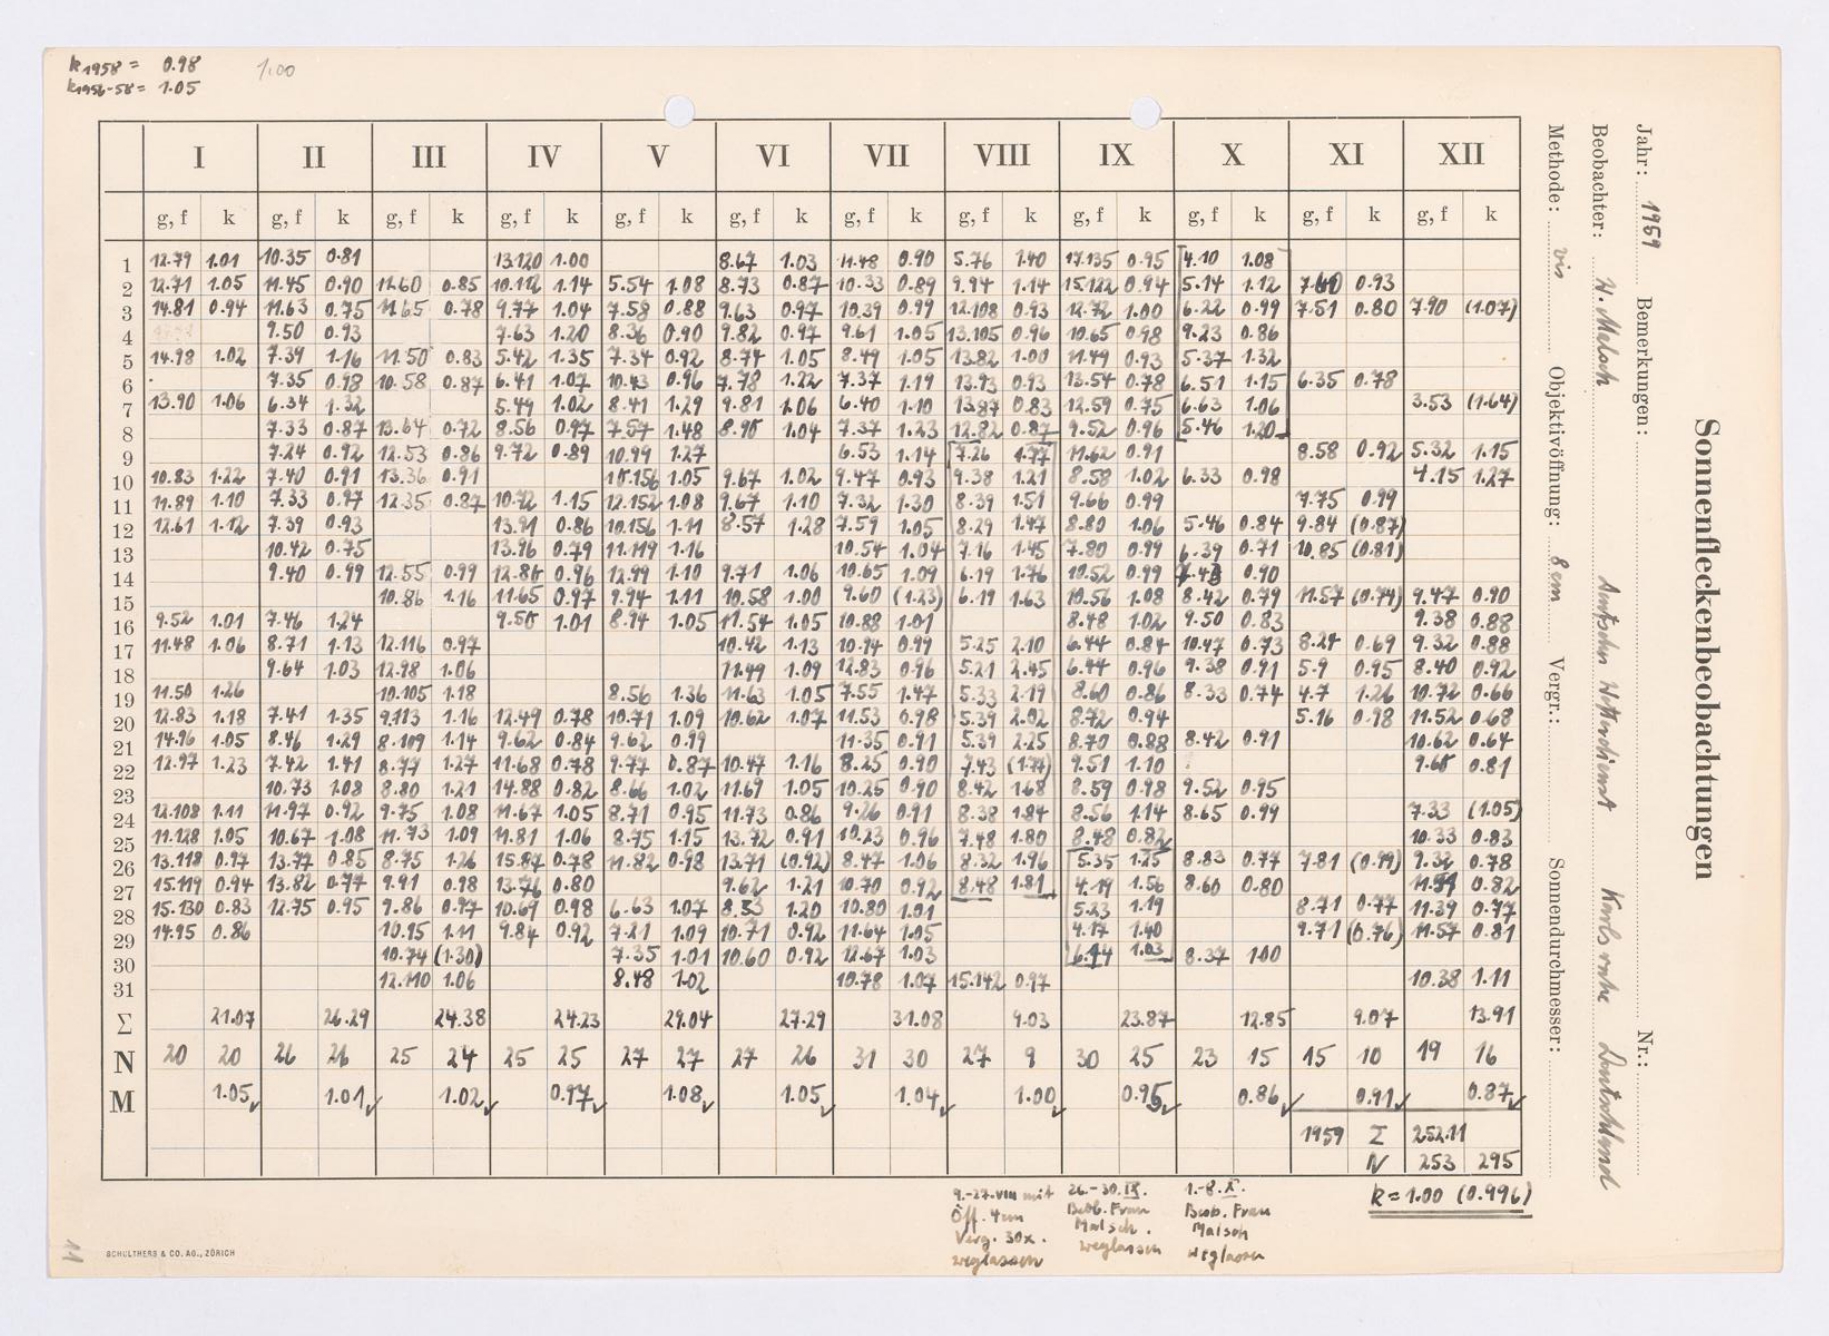 k1958 = 0.98 1.00
k1956-58 = 1.05
I II III IV V VI VII VIII IX X XI XII
g, f k g, f k g, f k g, f k g, f k g, f k g, f k g, f k g, f k g, f k g, f k g, f k
1 12.79 1.01 10.35 0.81 13.120 1.00 8.67 1.03 11.48 0.90 5.76 1.40 17.135 0.95 4.10 1.08
2 12.71 1.05 11.45 0.90 11.60 0.85 10.112 1.14 5.54 1.08 8.73 0.87 10.33 0.89 9.94 1.14 15.122 0.94 5.14 1.12 0.93
3 14.81 0.94 11.63 0.75 11.65 0.78 9.77 1.04 7.58 0.88 9.63 0.97 10.39 0.99 12.108 0.93 12.72 1.00 6.22 0.99 7.51 0.80 7.90 (1.07)
4 9.50 0.93 7.63 1.20 8.36 0.90 9.82 0.97 9.61 1.05 13.105 0.96 10.65 0.98 9.23 0.86
5 14.98 1.02 7.39 1.16 11.50 0.83 5.42 1.35 7.34 0.92 8.74 1.05 8.49 1.05 13.82 1.00 11.49 0.93 5.37 1.32
6 7.35 0.98 10.58 0.87 6.41 1.07 10.43 0.96 7.78 1.22 7.37 1.19 13.93 0.93 13.54 0.78 6.51 1.15 6.35 0.78
7 13.90 1.06 6.34 1.32 5.49 1.02 8.41 1.29 9.81 1.06 6.40 1.10 13.87 0.83 12.59 0.75 6.63 1.06 3.53 (1.64)
8 7.33 0.87 13.64 0.72 8.56 0.97 7.57 1.48 8.98 1.04 7.37 1.23 12.82 0.87 9.52 0.96 5.46 1.20
9 7.24 0.92 12.53 0.86 9.72 0.89 10.99 1.27 6.53 1.14 7.26 1.77 11.62 0.91 8.58 0.92 5.32 1.15
10 10.83 1.22 7.40 0.91 13.36 0.91 10.156 1.05 9.67 1.02 9.47 0.93 9.38 1.21 8.58 1.02 6.33 0.98 4.15 1.27
11 11.89 1.10 7.33 0.97 12.35 0.87 10.72 1.15 12.152 1.08 9.67 1.10 7.32 1.30 8.39 1.51 9.66 0.99 7.75 0.99
12 12.61 1.12 7.39 0.93 13.91 0.86 10.156 1.11 8.57 1.28 7.59 1.05 8.29 1.47 8.80 1.06 5.46 0.84 9.84 (0.87)
13 10.42 0.75 13.96 0.79 11.119 1.16 10.54 1.04 7.16 1.45 7.80 0.99 6.39 0.71 10.85 (0.81)
14 9.40 0.99 12.55 0.99 12.86 0.96 12.99 1.10 9.71 1.06 10.65 1.09 6.19 1.76 10.52 0.99 0.90
15 10.86 1.16 11.65 0.97 9.94 1.11 10.58 1.00 9.60 (1.23) 6.19 1.63 10.56 1.08 8.42 0.79 11.57 (0.74) 9.47 0.90
16 9.52 1.01 7.46 1.24 9.50 1.01 8.94 1.05 11.54 1.05 10.88 1.01 8.48 1.02 9.50 0.83 9.38 0.88
17 11.48 1.06 8.71 1.13 12.116 0.97 10.42 1.13 10.94 0.99 5.25 2.10 6.44 0.84 10.47 0.73 8.24 0.69 9.32 0.88
18 9.64 1.03 12.98 1.06 11.49 1.09 12.83 0.96 5.21 2.45 6.44 0.96 9.38 0.91 5.9 0.95 8.40 0.92
19 11.50 1.26 10.105 1.18 8.56 1.36 11.63 1.05 7.55 1.47 5.33 2.19 8.60 0.86 8.33 0.74 4.7 1.26 10.72 0.66
20 12.83 1.18 7.41 1.35 9.113 1.16 12.49 0.78 10.71 1.09 10.62 1.07 11.53 0.98 5.39 2.02 8.72 0.94 5.16 0.98 11.52 0.68
21 14.96 1.05 8.46 1.29 8.109 1.14 9.62 0.84 9.62 0.99 11.35 0.91 5.39 2.25 8.70 0.88 8.42 0.91 10.62 0.64
22 12.97 1.23 7.42 1.41 8.77 1.27 11.68 0.78 9.77 0.87 10.47 1.16 8.25 0.90 7.43 (1.77) 9.51 1.10 9.68 0.81
23 10.73 1.08 8.80 1.21 14.88 0.82 8.66 1.02 11.69 1.05 10.25 0.90 8.42 1.68 8.59 0.98 9.52 0.95
24 12.108 1.11 11.97 0.92 9.75 1.08 11.67 1.05 8.71 0.95 11.73 0.86 9.26 0.91 8.38 1.84 8.56 1.14 8.65 0.99 7.33 (1.05)
25 11.128 1.05 10.67 1.08 11.73 1.09 11.81 1.06 8.75 1.15 13.72 0.91 10.23 0.96 7.48 1.80 8.48 0.82 10.33 0.83
26 13.118 0.97 13.77 0.85 8.75 1.26 15.87 0.78 11.82 0.98 13.71 (0.92) 8.47 1.06 8.32 1.96 5.35 1.25 8.83 0.77 7.81 (0.99) 9.32 0.78
27 15.119 0.94 13.82 0.77 9.91 0.98 13.76 0.80 9.62 1.21 10.70 0.92 8.48 1.81 4.19 1.56 8.60 0.80 0.82
28 15.130 0.83 12.75 0.95 9.86 0.97 10.69 0.98 6.63 1.07 8.53 1.20 10.80 1.01 5.23 1.19 8.71 0.77 11.39 0.77
29 14.95 0.86 10.95 1.11 9.84 0.92 7.21 1.09 10.71 0.92 11.64 1.05 4.17 1.40 9.71 (0.76) 11.57 0.81
30 10.74 (1.30) 7.35 1.01 10.60 0.92 12.67 1.03 6.44 1.03 8.37 1.00
31 12.110 1.06 8.48 1.02 10.78 1.07 15.142 0.97 10.38 1.11
Σ 21.07 26.29 24.38 24.23 29.04 27.29 31.08 9.03 23.87 12.85 9.07 13.91
N 20 20 26 26 25 24 25 25 27 27 27 26 31 30 27 9 30 25 23 15 15 10 19 16
M 1.05 1.01 1.02 0.97 1.08 1.05 1.04 1.00 0.95 0.86 0.91 0.87
1959 Σ 252.11
N 253 295
k = 1.00 (0.996)
9.-27.VIII mit
Öff. 4cm
Verg. 30x.
weglassen
26.-30.IX.
Beob. Frau
Malsch.
weglassen
1.-8.X.
Beob. Frau
Malsch
weglassen
SCHULTHESS & CO. AG., ZÜRICH
11
Sonnenfleckenbeobachtungen
Jahr: 1959 Bemerkungen: Nr.:
Beobachter: W. Malsch Karlsruhe Deutschland
Methode: vis Objektivöffnung: 8cm Vergr.: Sonnendurchmesser: